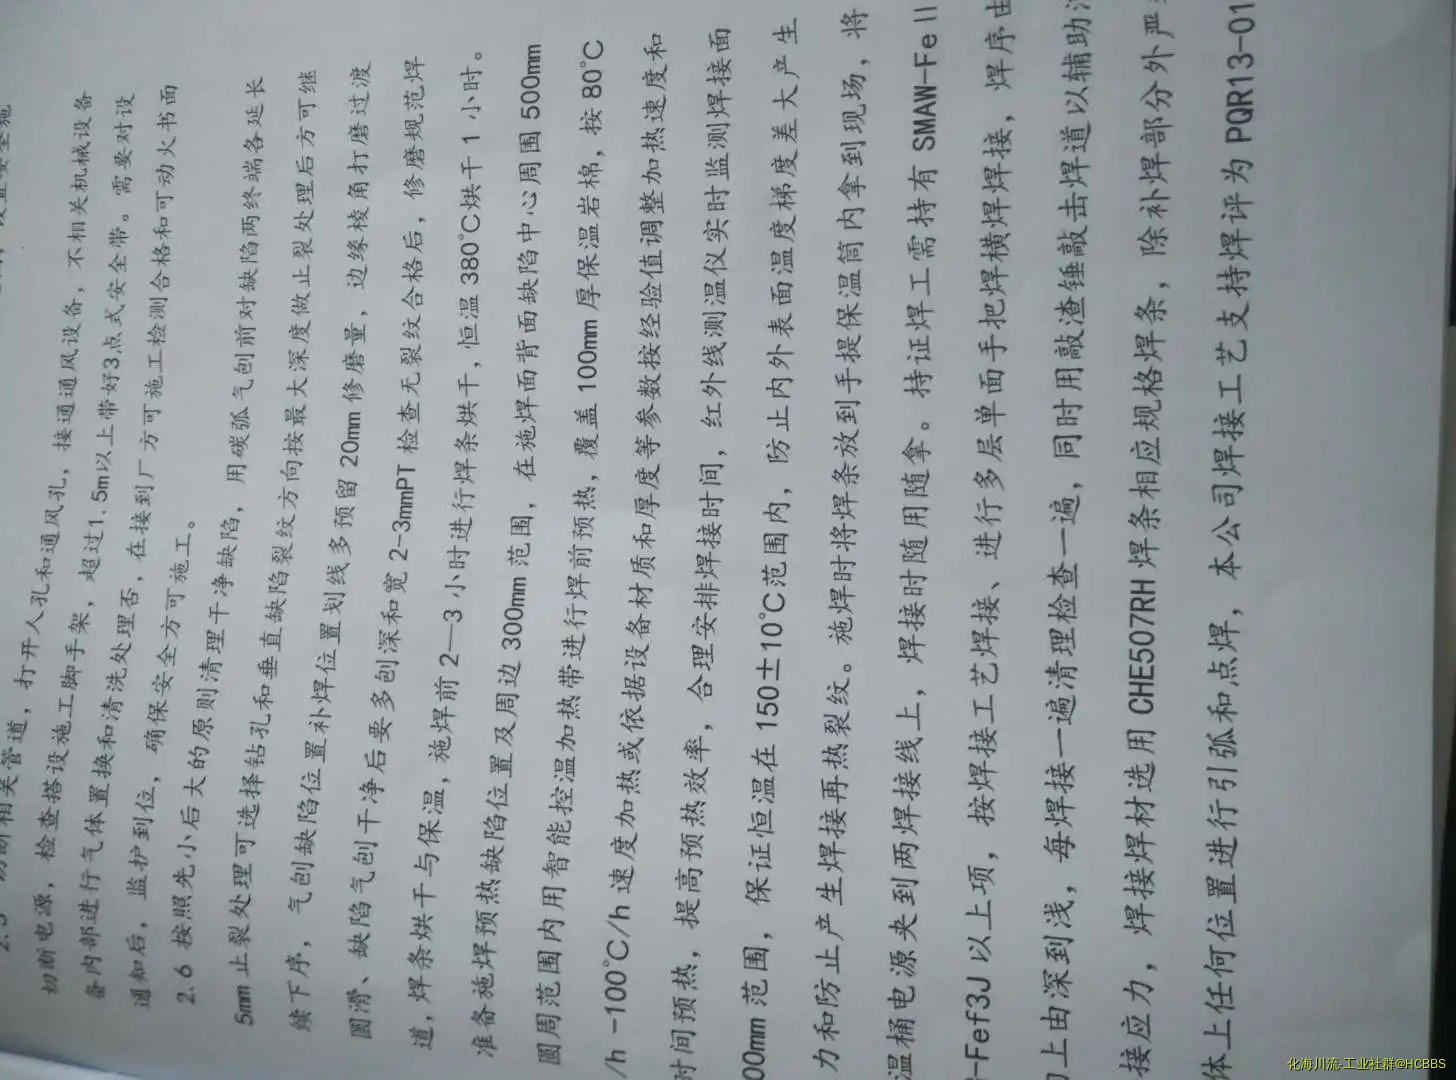 切断电源，检查搭设施工脚手架，打开人孔和通风孔，接通通风设备，不相关机械设备
备内部进行气体置换和清洗处理否，超过1.5m以上带好3点式安全带。需要对设
通知后，监护到位，确保安全方可施工。在接到厂方可施工检测合格和可动火书面
2.6 按照先小后大的原则清理干净缺陷，用碳弧气刨前对缺陷两终端各延长
5mm 止裂处理可选择钻孔和垂直缺陷裂纹方向按最大深度做止裂处理后方可继
续下序，气刨缺陷位置补焊位置划线多预留 20mm 修磨量，边缘棱角打磨过渡
圆滑、缺陷气刨干净后要多刨深和宽 2-3mmPT 检查无裂纹合格后，修磨规范焊
道，焊条烘干与保温，施焊前 2—3 小时进行焊条烘干，恒温 380℃烘干 1 小时。
准备施焊预热缺陷位置及周边 300mm 范围，在施焊面背面缺陷中心周围 500mm
圆周范围内用智能控温加热带进行焊前预热，覆盖 100mm 厚保温岩棉，按 80℃
/h -100℃/h 速度加热或依据设备材质和厚度等参数按经验值调整加热速度和
时间预热，提高预热效率，合理安排焊接时间，红外线测温仪实时监测焊接面
00mm 范围，保证恒温在 150±10℃范围内，防止内外表面温度梯度差大产生
力和防止产生焊接再热裂纹。施焊时将焊条放到手提保温筒内拿到现场，将
温桶电源夹到两焊接线上，焊接时随用随拿。持证焊工需持有 SMAW-FeⅡ
-Fef3J 以上项，按焊接工艺焊接、进行多层单面手把焊横焊焊接，焊序由
上由深到浅，每焊接一遍清理检查一遍，同时用敲渣锤敲击焊道以辅助
接应力，焊接焊材选用 CHE507RH 焊条相应规格焊条，除补焊部分外严
体上任何位置进行引弧和点焊，本公司焊接工艺支持焊评为 PQR13-01
化海川流-工业社群@HCBBS